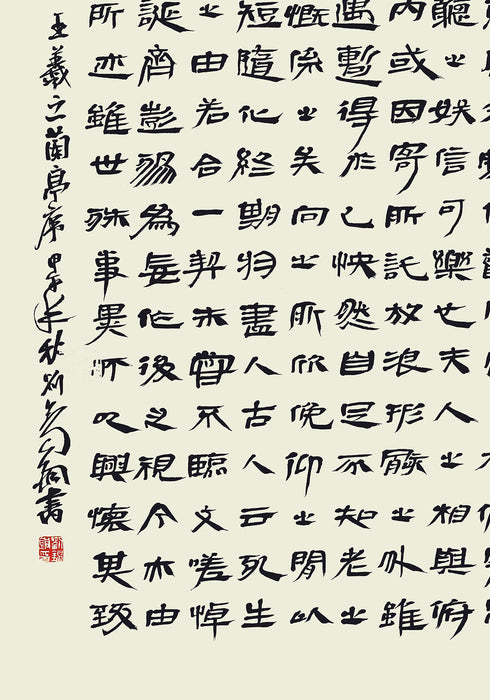 聽之娛信可樂也夫人之相與俯
內或因寄所託放浪形骸之外雖
遇暫得於己快然自足不知老之
慨係之矣向之所欣俛仰之間以
短隨化終期於盡人古人云死生
之由若合一契未嘗不臨文嗟悼
誕齊彭殤為妄作後之視今亦由
所述雖世殊事異所以興懷其致
王羲之蘭亭序甲午年秋書